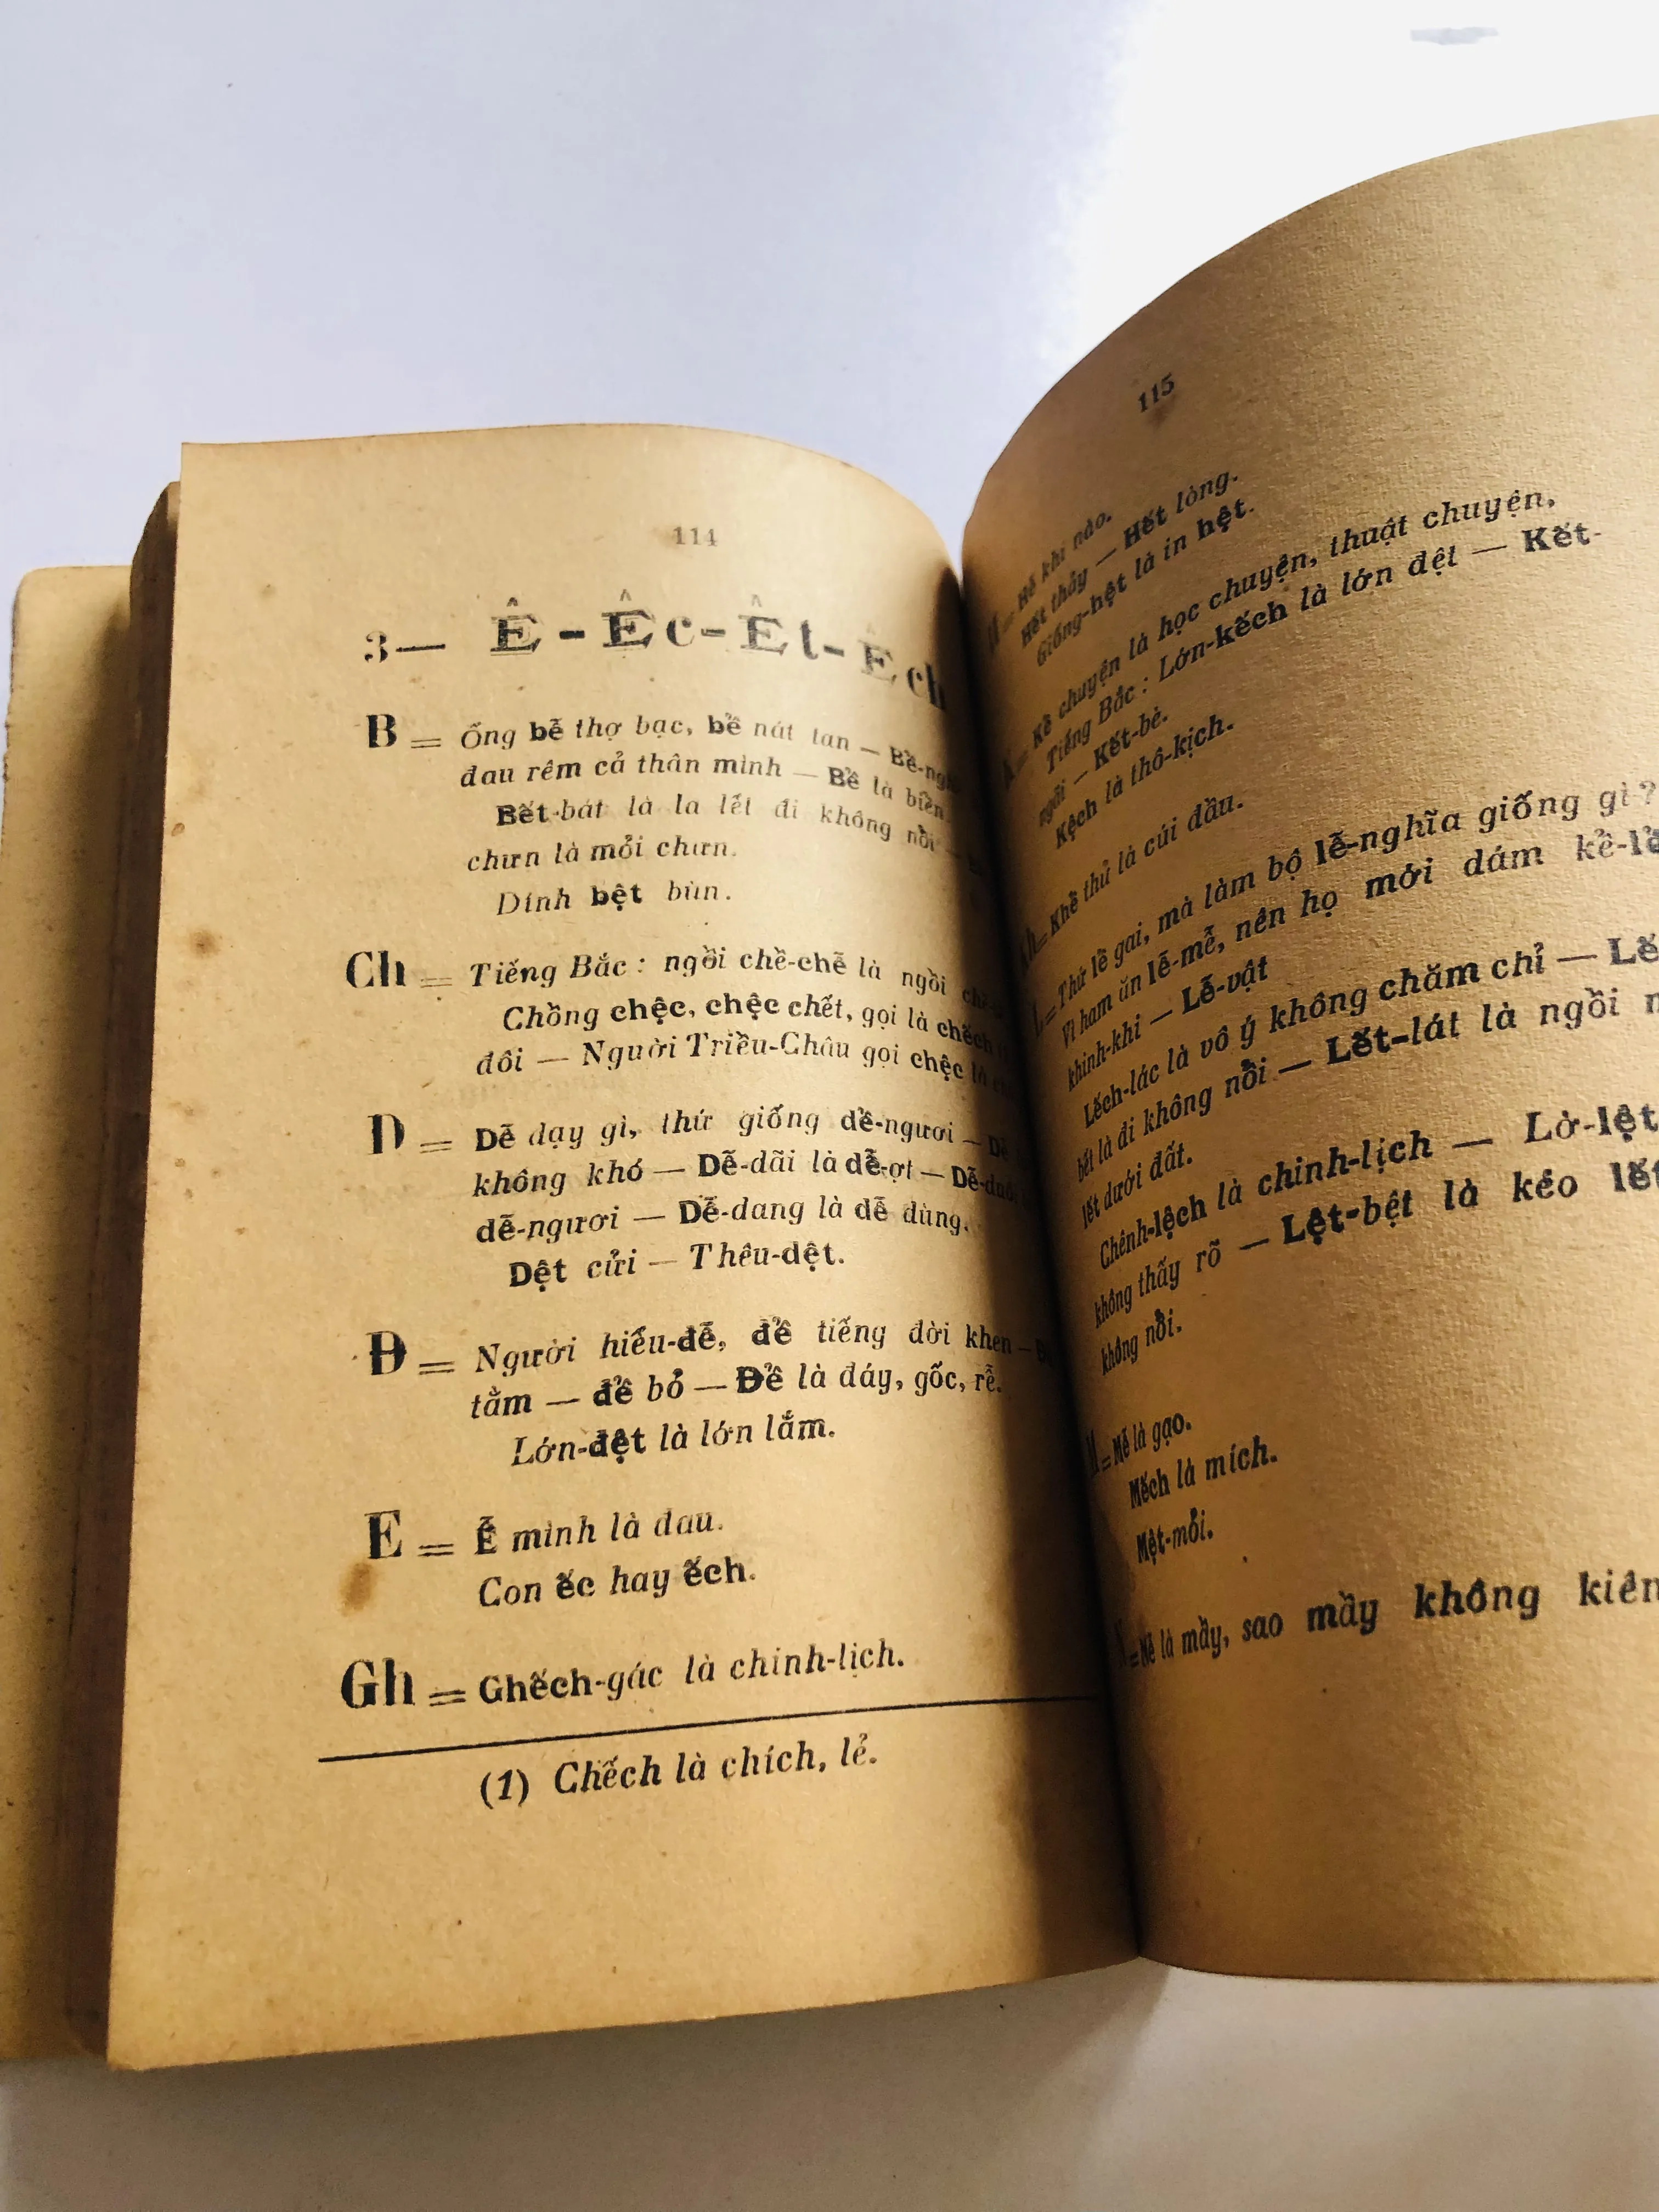 114
3— Ê - Êc - Êt - Êch
B = Ống bễ thợ bạc, bể nát tan —
đau rêm cả thân mình — Bể là biển.
Bết-bát là la lết đi không nổi —
chưn là mỏi chưn.
Dính bệt bùn.
Ch = Tiếng Bắc : ngồi chề-chễ là ngồi
Chồng chệc, chệc chết, gọi là chếch
đôi — Người Triều-Châu gọi chệc là
D = Dễ dạy gì, thứ giống dể-ngươi —
không khó — Dễ-dãi là dễ-ợt —
dễ-ngươi — Dễ-dang là dễ dùng.
Dệt cửi — Thêu-dệt.
Đ = Người hiếu-đễ, để tiếng đời khen —
tằm — để bỏ — Để là đáy, gốc, rễ.
Lớn-đệt là lớn lắm.
E = Ễ mình là đau.
Con ếc hay ếch.
Gh = Ghếch-gác là chinh-lịch.
(1) Chếch là chích, lẻ.
115
khi nào.
Hết thảy — Hết lòng.
Giống-hệt là in hệt.
Kề chuyện là học chuyện, thuật chuyện,
Tiếng Bắc : Lớn-kếch là lớn đệt — Kết-
ngồi — Kết-bè.
Kệch là thô-kịch.
thủ là cúi đầu.
Thứ lề gai, mà làm bộ lễ-nghĩa giống gì ?
Vì ham ăn lễ-mễ, nên họ mới dám
khinh-khi — Lễ-vật
Lếch-lác là vô ý không chăm chỉ —
bết là đi không nổi — Lết-lát là ngồi
lết dưới đất.
Chênh-lệch là chinh-lịch — Lờ-lệt
không thấy rõ — Lệt-bệt là kéo
không nổi.
là gạo.
Mếch là mích.
Mệt-mỏi.
là mầy, sao mầy không